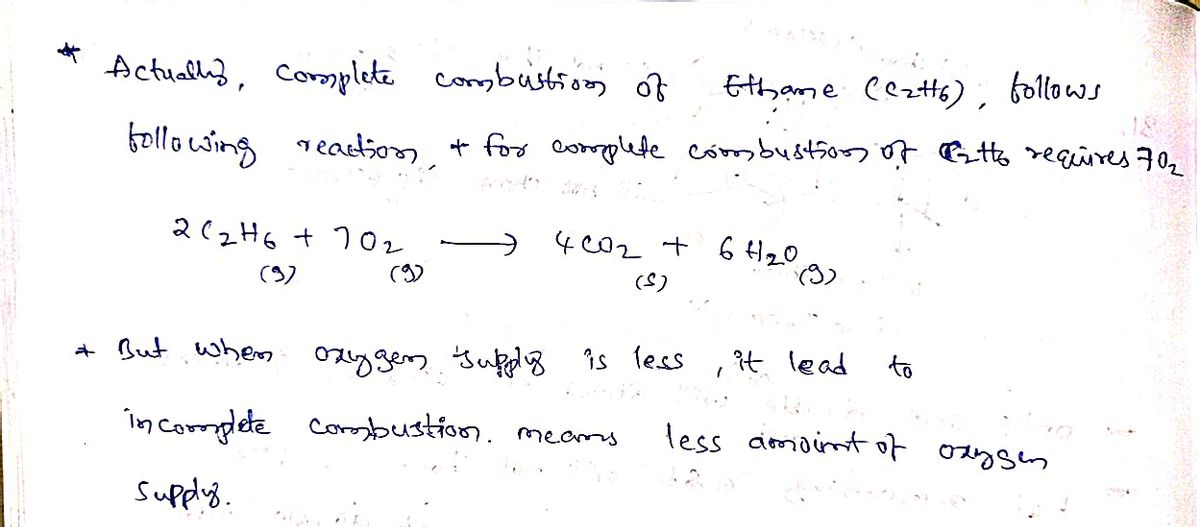 * Actually, complete combustion of Ethane (C2H6), follows
following reaction, + for complete combustion of C2H6 requires 7O2
2C2H6 + 7O2 ⟶ 4CO2 + 6H2O
(g) (g) (s) (g)
* But when oxygen supply is less, it lead to
incomplete combustion. means less amoint of oxygen
supply.